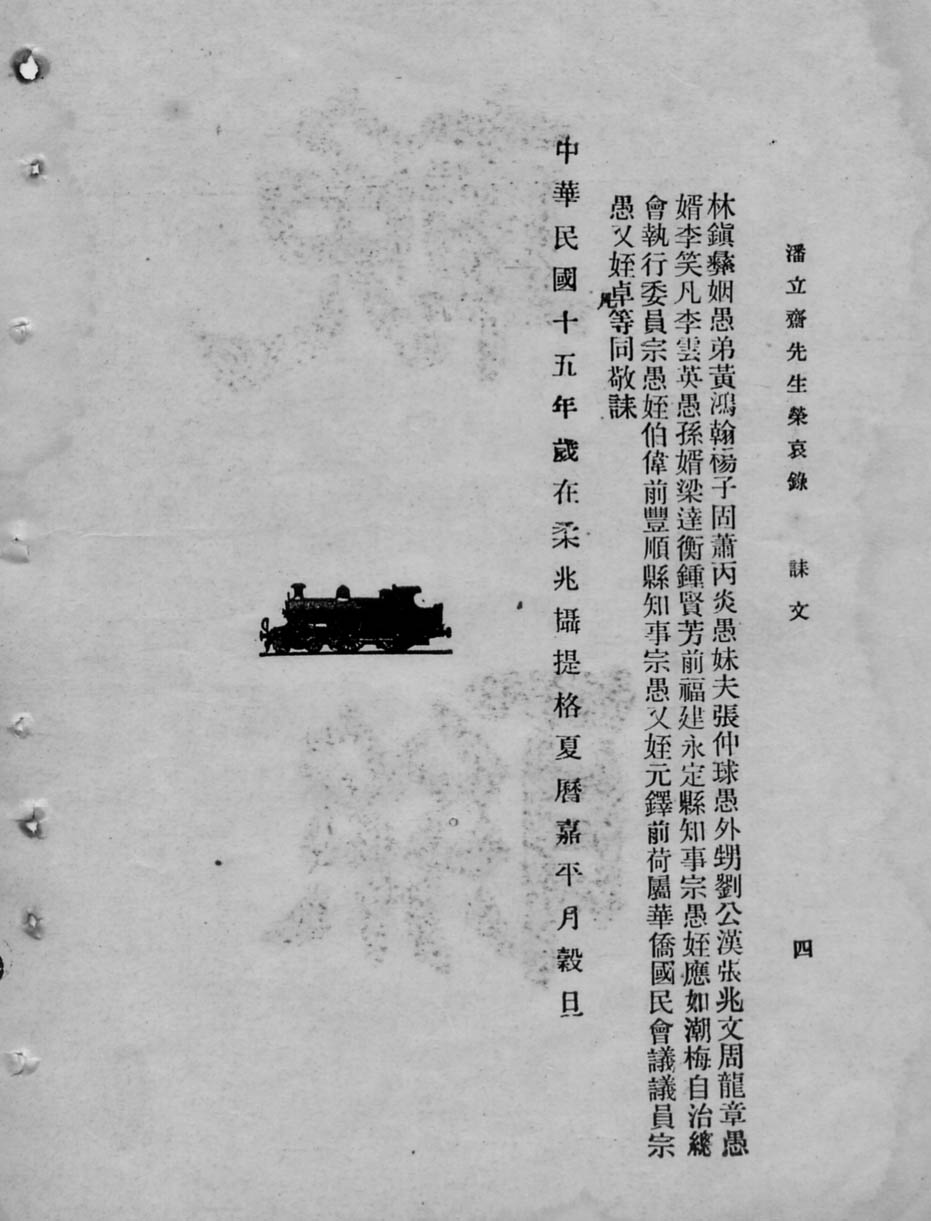 潘立齋先生榮哀錄 誄文 四
林鎭彝姻愚弟黃鴻翰楊子固蕭丙炎愚妹夫張仲球愚外甥劉公漢張兆文周龍章愚
婿李笑凡李雲英愚孫婿梁達衡鍾賢芳前福建永定縣知事宗愚姪應如潮梅自治總
會執行委員宗愚姪伯偉前豐順縣知事宗愚又姪元鐸前荷屬華僑國民會議議員宗
愚又姪卓凡等同敬誄
中華民國十五年歲在柔兆攝提格夏曆嘉平月穀旦